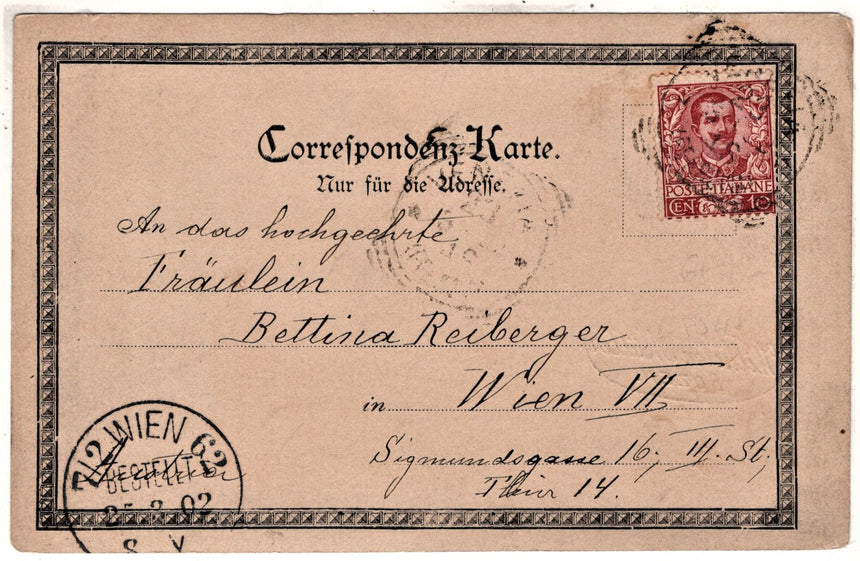 Correspondenz-Karte.
Nur für die Adresse.
POSTE ITALIANE
CEN 10
VENEZIA
23
An das hochgeehrte
Fräulein
Bettina Reiberger
in Wien VII
Sigmundsgasse 16, III. St,
Thür 14.
7/2 WIEN 62
BESTELLT
2 02